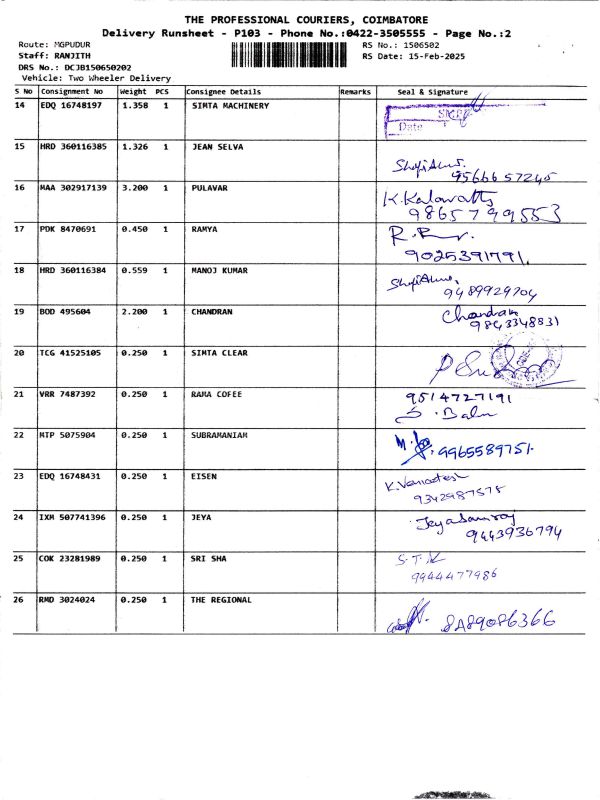 THE PROFESSIONAL COURIERS, COIMBATORE
Delivery Runsheet - P103 - Phone No.:0422-3505555 - Page No.:2
Route: MGPUDUR RS No.: 1506502
Staff: RANJITH RS Date: 15-Feb-2025
DRS No.: DCJB150650202
Vehicle: Two Wheeler Delivery
S No Consignment No Weight PCS Consignee Details Remarks Seal & Signature
14 EDQ 16748197 1.358 1 SIMTA MACHINERY
Date
15 HRD 360116385 1.326 1 JEAN SELVA
9566657245
16 MAA 302917139 3.200 1 PULAVAR K.Kalavathi
9865799553
17 PDK 8470691 0.450 1 RAMYA
9025391791.
18 HRD 360116384 0.559 1 MANOJ KUMAR
9489929704
19 BOD 495604 2.200 1 CHANDRAN Chandran
9843348831
20 TCG 41525105 0.250 1 SIMTA CLEAR
21 VRR 7487392 0.250 1 RAMA COFEE 9514727191
S. Balu
22 MTP 5075904 0.250 1 SUBRAMANIAM
9965589751.
23 EDQ 16748431 0.250 1 EISEN K.Venkatesh
9342987575
24 IXM 507741396 0.250 1 JEYA Jeyasamraj
9443936794
25 COK 23281989 0.250 1 SRI SHA S.T.K
9944477986
26 RMD 3024024 0.250 1 THE REGIONAL
8489086366